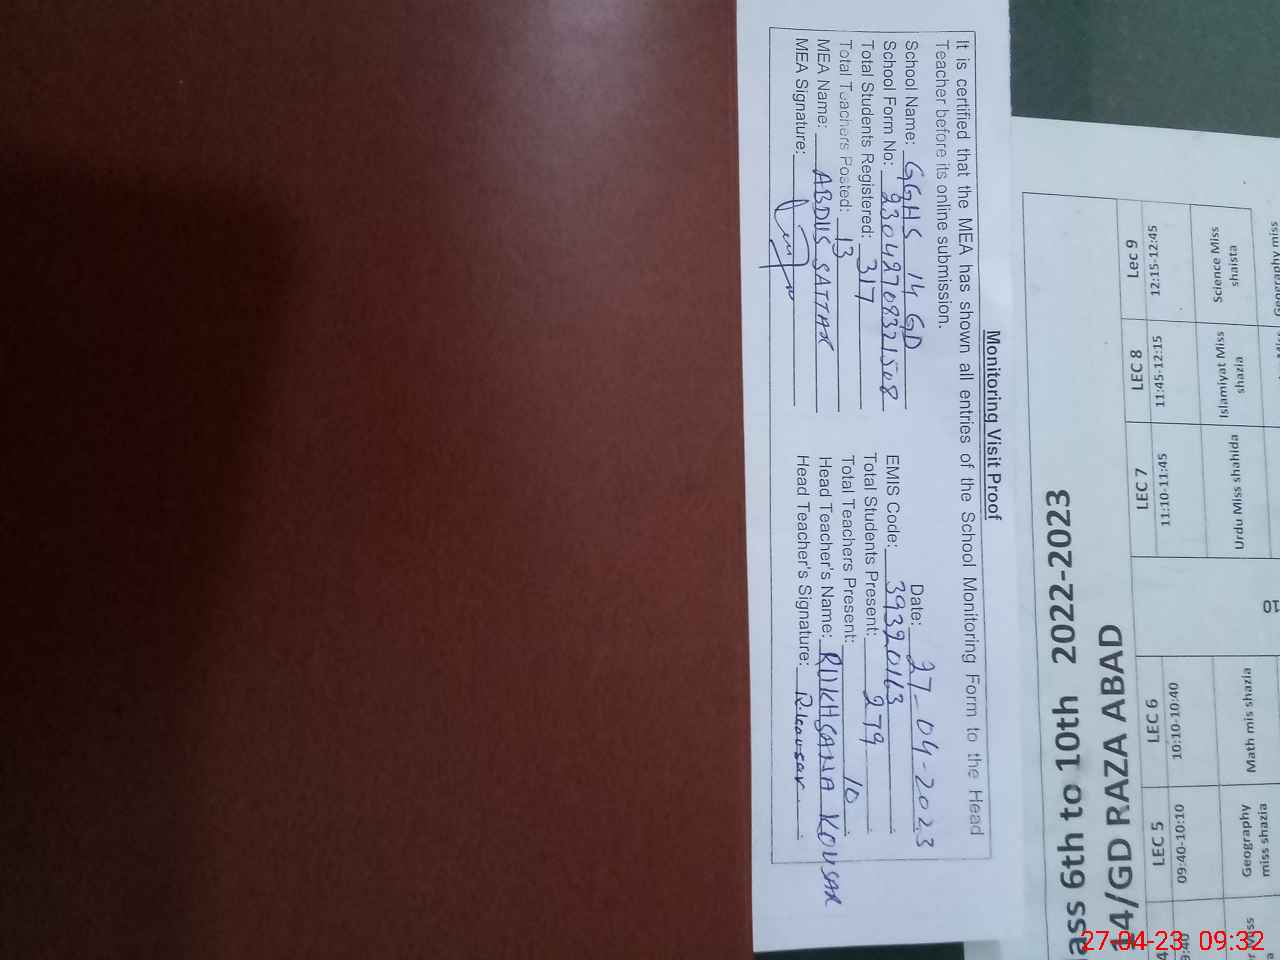 Monitoring Visit Proof
It is certified that the MEA has shown all entries of the School Monitoring Form to the Head
Teacher before its online submission.
Date: 27-04-2023
School Name: GGHS 14 GD
School Form No: 23042708321508 EMIS Code: 39320163
Total Students Registered: 317 Total Students Present: 279
Total Teachers Posted: 13 Total Teachers Present: 10
MEA Name: ABDUS SATTAR Head Teacher's Name: RUKHSANA KOUSAR
MEA Signature: Head Teacher's Signature: R.kousar
ass 6th to 10th 2022-2023
14/GD RAZA ABAD
LEC 5 LEC 6 LEC 7 LEC 8 Lec 9
09:40-10:10 10:10-10:40 11:10-11:45 11:45-12:15 12:15-12:45
Geography miss shazia
Math mis shazia
Urdu Miss shahida
Islamiyat Miss shazia
Science Miss shaista
Geography miss
27-04-23 09:32